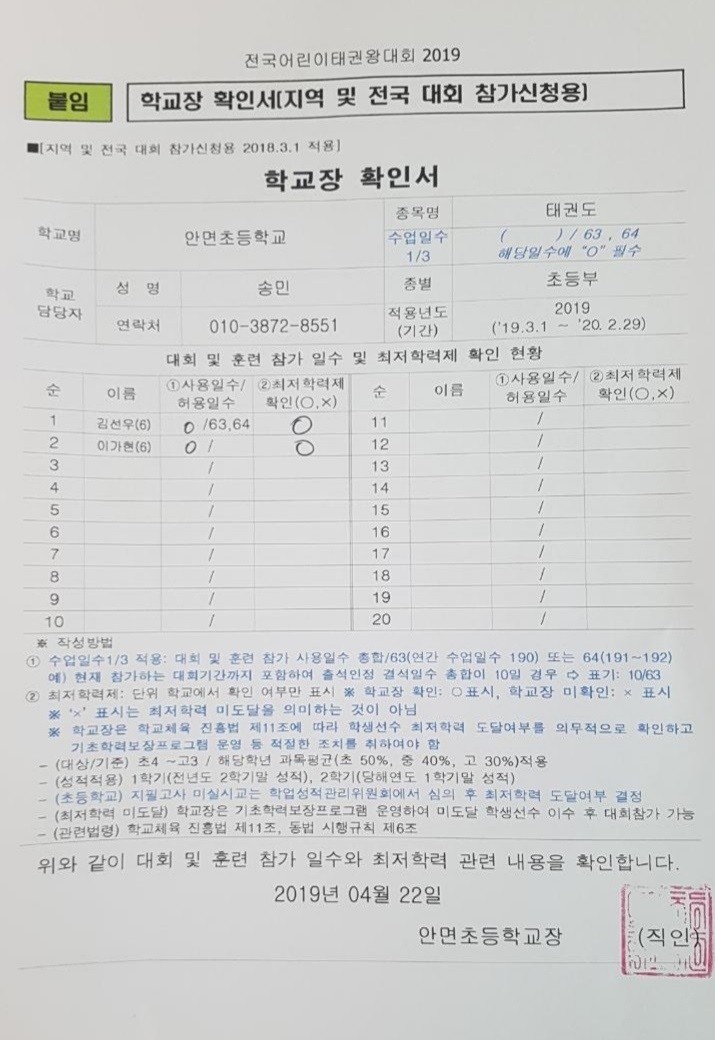 전국어린이태권왕대회 2019
붙임
학교장 확인서(지역 및 전국 대회 참가신청용)
■[지역 및 전국 대회 참가신청용 2018.3.1 적용]
학교장 확인서
학교명 안면초등학교 종목명 태권도
수업일수 1/3 ( ) / 63 , 64
해당일수에 "O" 필수
학교 담당자 성 명 송민 종별 초등부
연락처 010-3872-8551 적용년도 (기간) 2019
('19.3.1 ~ '20. 2.29)
대회 및 훈련 참가 일수 및 최저학력제 확인 현황
순 이름 ①사용일수/허용일수 ②최저학력제 확인(○,×) 순 이름 ①사용일수/허용일수 ②최저학력제 확인(○,×)
1 김선우(6) 0 /63,64 ○ 11 /
2 이가현(6) 0 / ○ 12 /
3 / 13 /
4 / 14 /
5 / 15 /
6 / 16 /
7 / 17 /
8 / 18 /
9 / 19 /
10 / 20 /
※ 작성방법
① 수업일수1/3 적용: 대회 및 훈련 참가 사용일수 총합/63(연간 수업일수 190) 또는 64(191~192)
예) 현재 참가하는 대회기간까지 포함하여 출석인정 결석일수 총합이 10일 경우 ⇨ 표기: 10/63
② 최저학력제: 단위 학교에서 확인 여부만 표시 ※ 학교장 확인: ○표시, 학교장 미확인: × 표시
※ '×' 표시는 최저학력 미도달을 의미하는 것이 아님
※ 학교장은 학교체육 진흥법 제11조에 따라 학생선수 최저학력 도달여부를 의무적으로 확인하고
기초학력보장프로그램 운영 등 적절한 조치를 취하여야 함
- (대상/기준) 초4 ~고3 / 해당학년 과목평균(초 50%, 중 40%, 고 30%)적용
- (성적적용) 1학기(전년도 2학기말 성적), 2학기(당해연도 1학기말 성적)
- (초등학교) 지필고사 미실시교는 학업성적관리위원회에서 심의 후 최저학력 도달여부 결정
- (최저학력 미도달) 학교장은 기초학력보장프로그램 운영하여 미도달 학생선수 이수 후 대회참가 가능
- (관련법령) 학교체육 진흥법 제11조, 동법 시행규칙 제6조
위와 같이 대회 및 훈련 참가 일수와 최저학력 관련 내용을 확인합니다.
2019년 04월 22일
안면초등학교장 (직인)